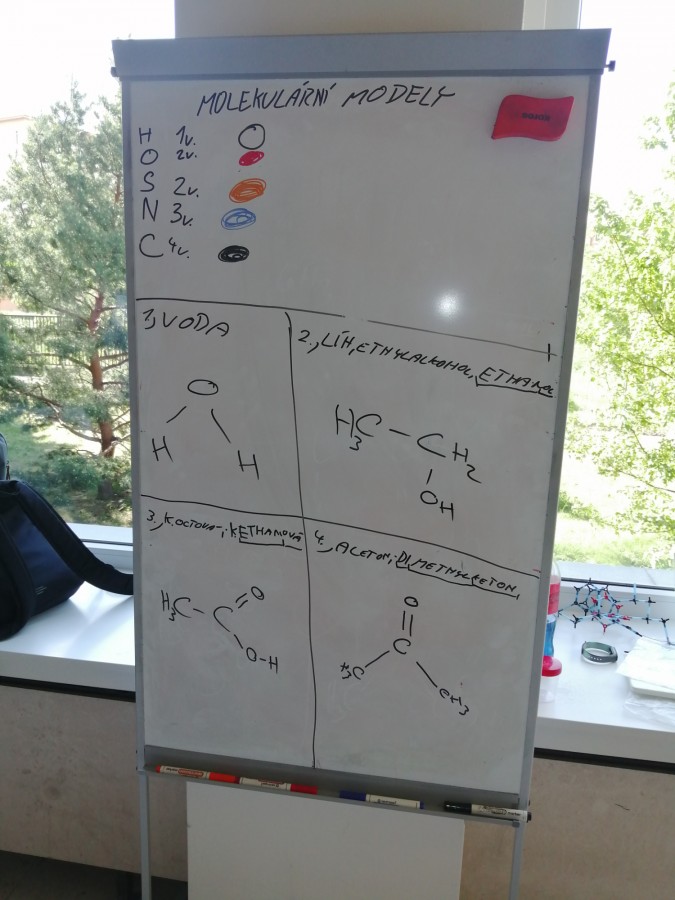 MOLEKULÁRNÍ MODELY
H 1v.
O 2v.
S 2v.
N 3v.
C 4v.
1, VODA
O
H H
2., LÍH, ETHYLALKOHOL, ETHANOL
H3C - CH2
OH
3., K. OCTOVÁ; K. ETHANOVÁ
H3C - C = O
O-H
4., ACETON; DIMETHYLKETON,
O
C
H3C CH3